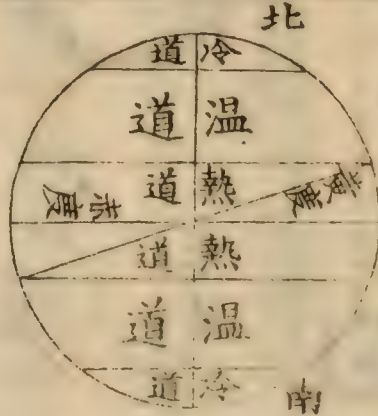 北
冷道
温道
熱道
黃度
赤度
熱道
温道
冷道
南